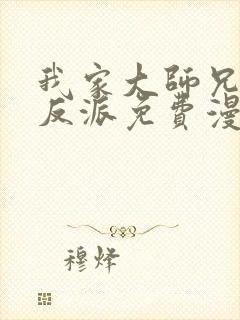 我家大師兄
反派免費漫
穆烽